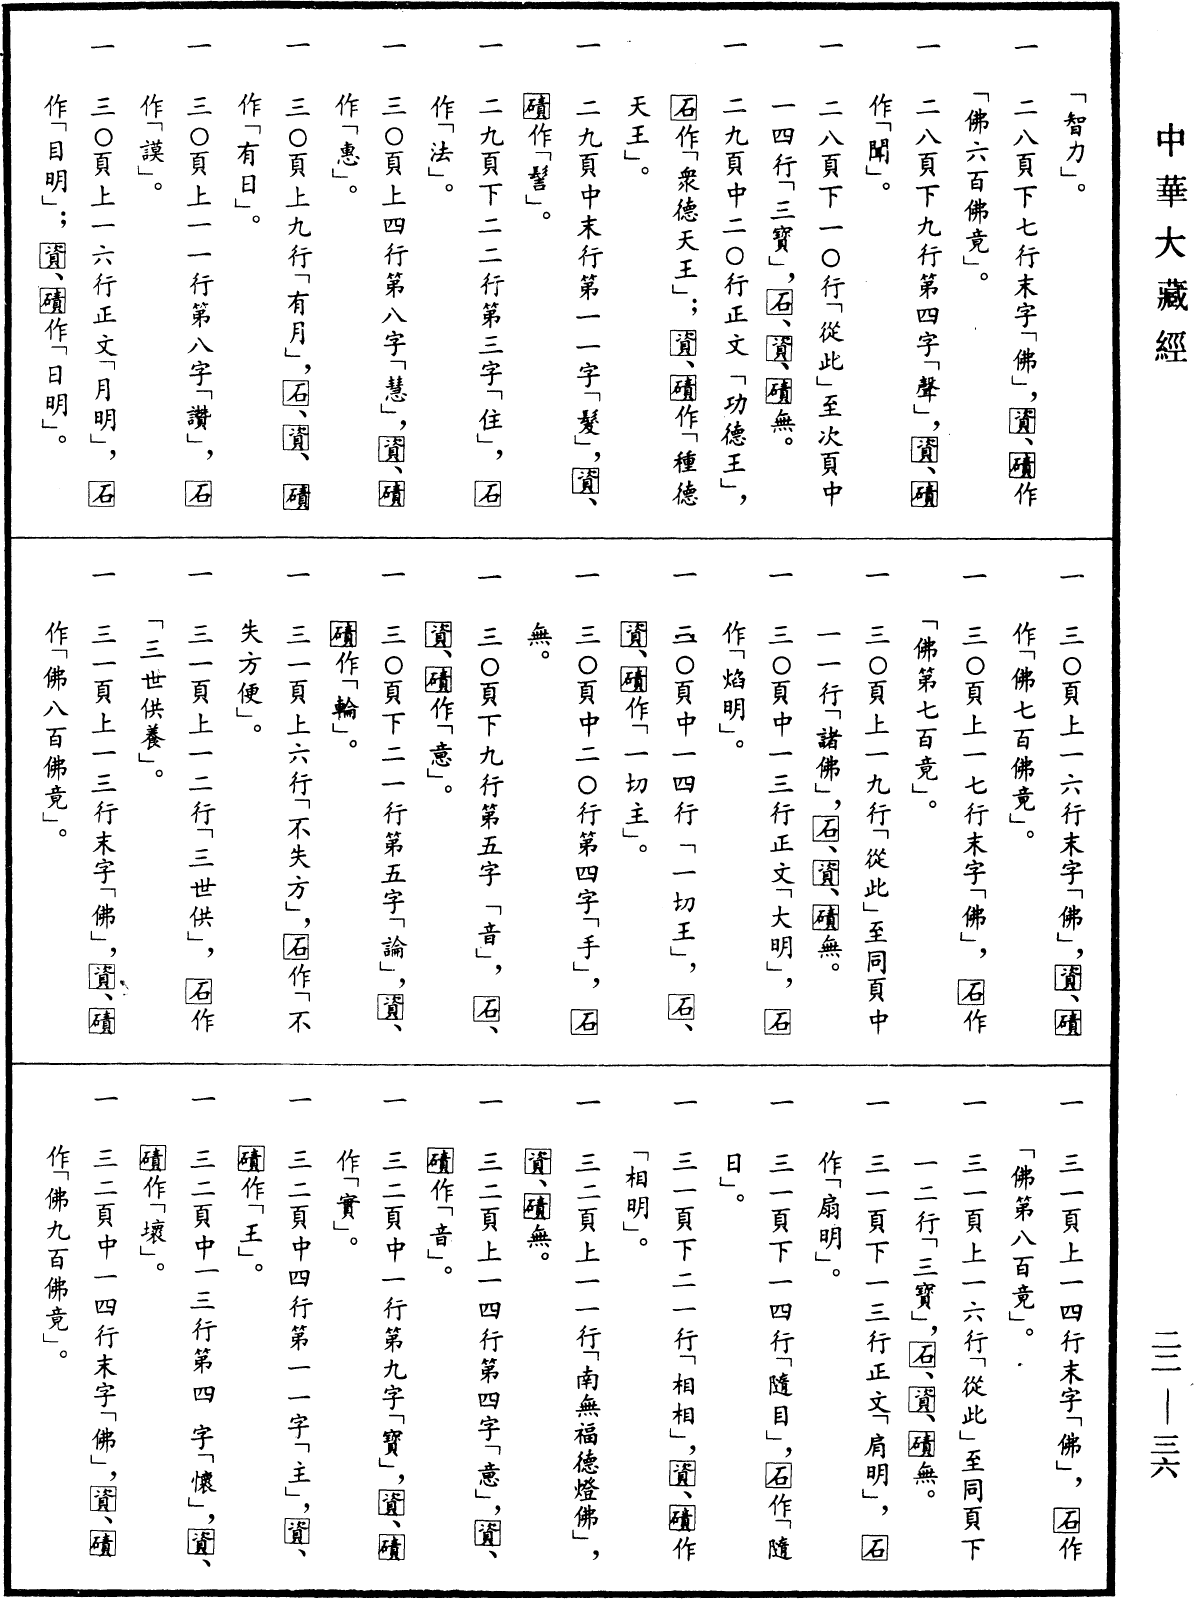 中華大藏經
「智力」。
一　二八頁下七行末字「佛」，資、磧作
「佛六百佛竟」。
一　二八頁下九行第四字「聲」，資、磧
作「聞」。
一　二八頁下一〇行「從此」至次頁中
一四行「三寶」，石、資、磧無。
一　二九頁中二〇行正文「功德王」，
石作「衆德天王」；資、磧作「種德
天王」。
一　二九頁中末行第一一字「髮」，資、
磧作「髻」。
一　二九頁下二二行第三字「住」，石
作「法」。
一　三〇頁上四行第八字「慧」，資、磧
作「惠」。
一　三〇頁上九行「有月」，石、資、磧
作「有日」。
一　三〇頁上一一行第八字「讚」，石
作「謨」。
一　三〇頁上一六行正文「月明」，石
作「目明」；資、磧作「日明」。
一　三〇頁上一六行末字「佛」，資、磧
作「佛七百佛竟」。
一　三〇頁上一七行末字「佛」，石作
「佛第七百竟」。
一　三〇頁上一九行「從此」至同頁中
一一行「諸佛」，石、資、磧無。
一　三〇頁中一三行正文「大明」，石
作「焰明」。
一　三〇頁中一四行「一切王」，石、
資、磧作「一切主」。
一　三〇頁中二〇行第四字「手」，石
無。
一　三〇頁下九行第五字「音」，石、
資、磧作「意」。
一　三〇頁下二一行第五字「論」，資、
磧作「輪」。
一　三一頁上六行「不失方」，石作「不
失方便」。
一　三一頁上一二行「三世供」，石作
「三世供養」。
一　三一頁上一三行末字「佛」，資、磧
作「佛八百佛竟」。
一　三一頁上一四行末字「佛」，石作
「佛第八百竟」。
一　三一頁上一六行「從此」至同頁下
一二行「三寶」，石、資、磧無。
一　三一頁下一三行正文「肩明」，石
作「扇明」。
一　三一頁下一四行「隨目」，石作「隨
日」。
一　三一頁下二一行「相相」，資、磧作
「相明」。
一　三二頁上一一行「南無福德燈佛」，
資、磧無。
一　三二頁上一四行第四字「意」，資、
磧作「音」。
一　三二頁中一行第九字「寶」，資、磧
作「實」。
一　三二頁中四行第一一字「主」，資、
磧作「王」。
一　三二頁中一三行第四字「懷」，資、
磧作「壞」。
一　三二頁中一四行末字「佛」，資、磧
作「佛九百佛竟」。
二二—三六